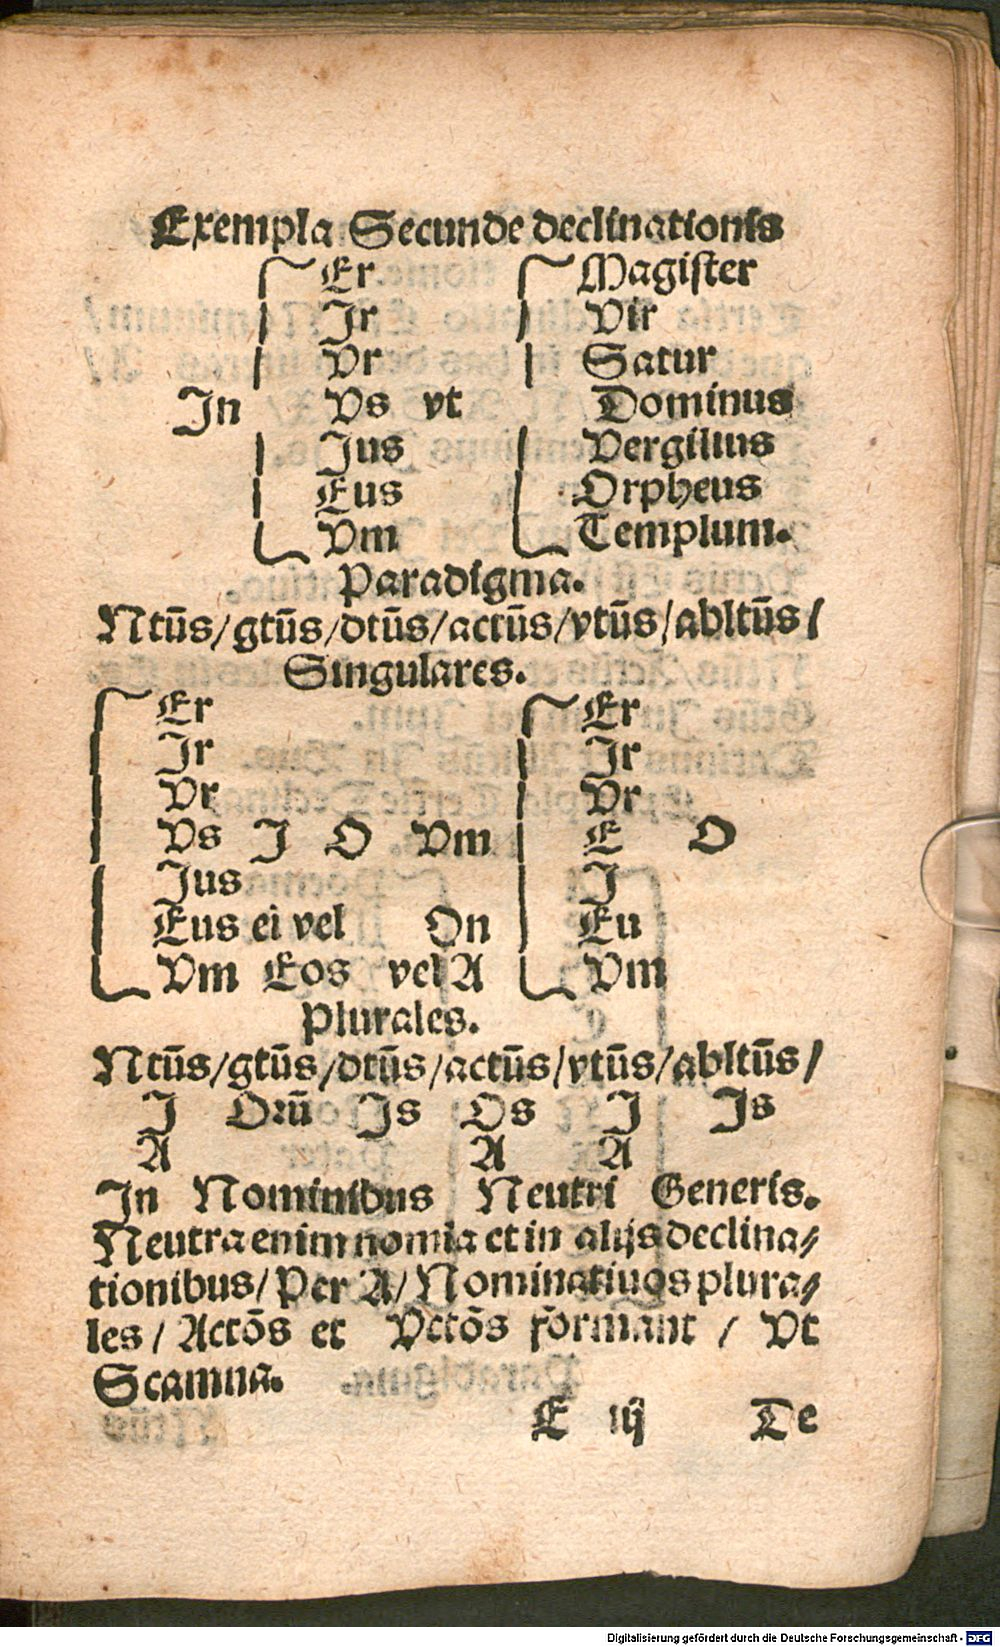 Exempla Secunde declinationis
Er Magister
Ir Vir
Vr Satur
In Vs vt Dominus
Ius Vergilius
Eus Orpheus
Vm Templum.
Paradigma.
Ntūs/gtūs/dtūs/actūs/vtūs/abltūs/
Singulares.
Er Er
Ir Ir
Vr Vr
Vs I O Vm E O
Ius I
Eus ei vel On Eu
Vm Eos vel A Vm
Plurales.
Ntūs/gtūs/dtūs/actūs/vtūs/abltūs/
I Orū Is Os I Is
A A A
In Nominibus Neutri Generis.
Neutra enim nomia et in alijs declina⸗
tionibus/Per A/Nominatiuos plura⸗
les/Actōs et Vctōs formant/Vt
Scamna.
E iij De
Digitalisierung gefördert durch die Deutsche Forschungsgemeinschaft - DFG